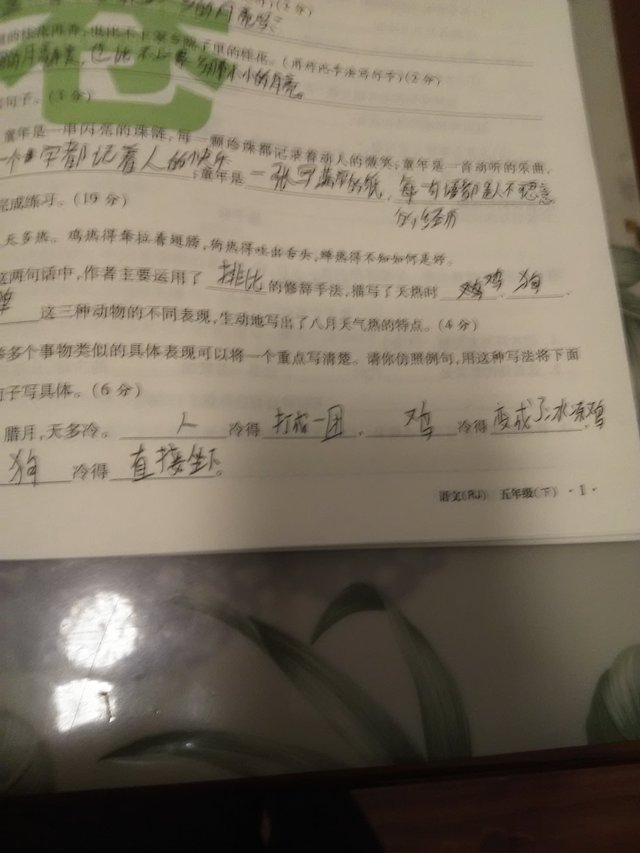 的月亮
的桂花再香,也比不上家乡院子里的桂花。(用作比手法写句子)(2分)
的月亮再美,也比不上家乡那个小小的月亮。
句子。(3分)
童年是一串闪亮的珠链,每一颗珍珠都记录着动人的微笑;童年是一首动听的乐曲,
一个字都记着人的快乐;童年是一张写满字的纸,每一句话都是人不愿意
的经历
完成练习。(10分)
天多热。鸡热得耷拉着翅膀,狗热得吐出舌头,蝉热得不知如何是好。
这两句话中,作者主要运用了 排比 的修辞手法,描写了天热时 鸡 、狗 、
蝉 这三种动物的不同表现,生动地写出了八月天气热的特点。(4分)
多个事物类似的具体表现可以将一个重点写清楚。请你仿照例句,用这种写法将下面
句子写具体。(6分)
腊月,天多冷。 人 冷得 打成一团 , 鸡 冷得 变成了冰冻鸡 ,
狗 冷得 直接坐下 。
语文(RJ) 五年级(下) ·1·